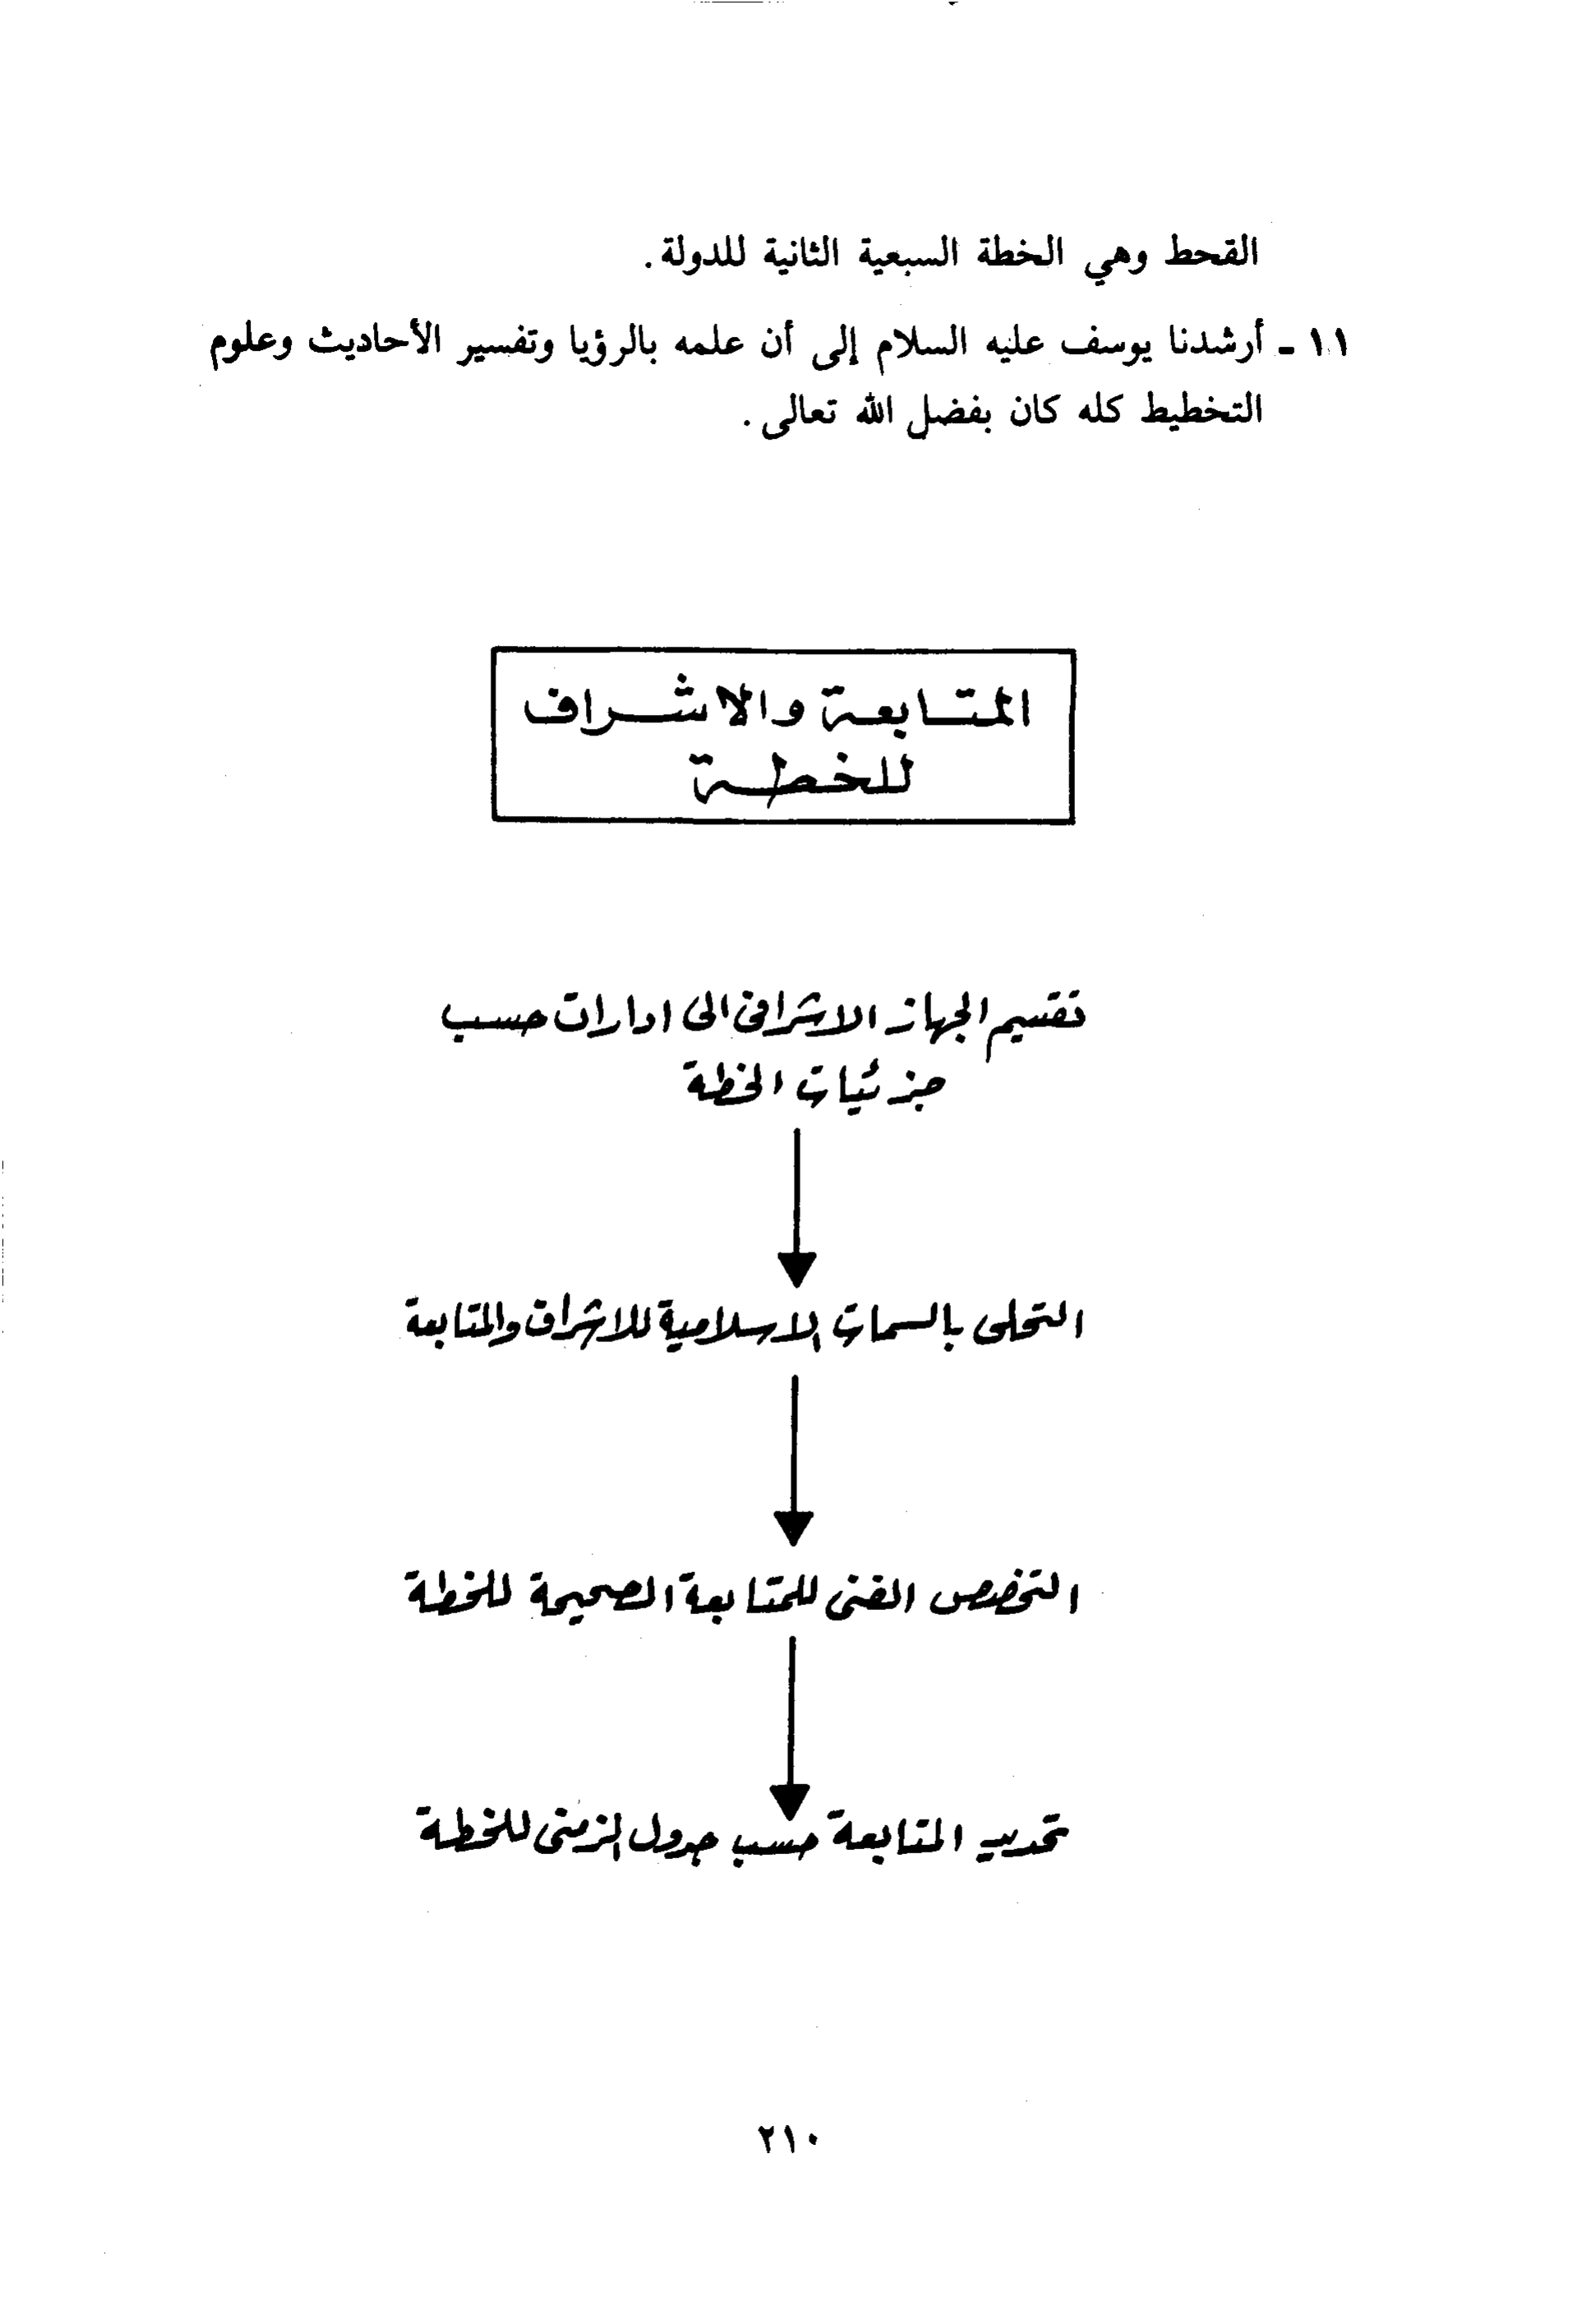 القحط وهي الخطة السبعية الثانية للدولة.
١١ ـ أرشدنا يوسف عليه السلام إلى أن علمه بالرؤيا وتفسير الأحاديث وعلوم
التخطيط كله كان بفضل الله تعالى.
المتابعة والاشراف
للخطة
تقسيم الجهاز الاشرافى الى ادارات حسب
جزئيات الخطة
التحلى بالسمات الاسلامية للاشراف والمتابعة
التخصص الفنى للمتابعة الصحيحة للخطة
تحديد المتابعة حسب جدول الزمنى للخطة
٢١٠